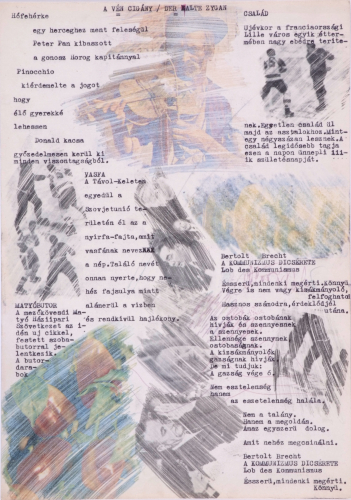 A VÉN CIGÁNY / DER ALTE ZYGAN
Hófehérke
egy herceghez ment feleségül
Peter Pan kibaszott
a gonosz Horog kapitánnyal
Pinocchio
kiérdemelte a jogot
hogy
élő gyerekké
lehessen
Donald kacsa
győzedelmesen kerül ki
minden viszontagságból.
CSALÁD
Ujévkor a franciaországi
Lille város egyik étter-
mében nagy ebédre terite-
nek. Egyetlen család ül
majd az asztalokhoz. Mint-
egy négyszázan lesznek. A
család legidősebb tagja
ezen a napon ünnepli 111-
ik születésnapját.
VASFA
A Távol-Keleten
egyedül a
Szovjetunió te-
rületén él az a
nyirfa-fajta, amit
vasfának nevez
a nép. Találó nevét
onnan nyerte, hogy ne-
héz fajsulya miatt
alámerül a vizben
és rendkivül hajlékony.
MATYÓBUTOR
A mezőkövesdi Ma-
tyó Háziipari
Szövetkezet az i-
dén uj cikkel,
festett szoba-
butorral je-
lentkezik.
A butor-
darab-
ok
Bertolt Brecht
A KOMMUNIZMUS DICSÉRETE
Lob des Kommunismus
Ésszerű, mindenki megérti. Könnyű.
Végre is nem vagy kizsákmányoló,
felfoghatod
Hasznos számodra, érdeklődjél
utána.
Az ostobák ostobának
hivják és szennyesnek
a szennyesek.
Ellensége szennynek
ostobaságnak.
A kizsákmányolók
gazságnak hivják
De mi tudjuk:
A gazság vége ő.
Nem esztelenség
hanem
az esztelenség halála.
Nem a talány.
Hanem a megoldás.
Amaz egyszerű dolog.
Amit nehéz megcsinálni.
Bertolt Brecht
A KOMMUNIZMUS DICSÉRETE
Lob des Kommunismus
Ésszerű, mindenki megérti.
Könnyű.